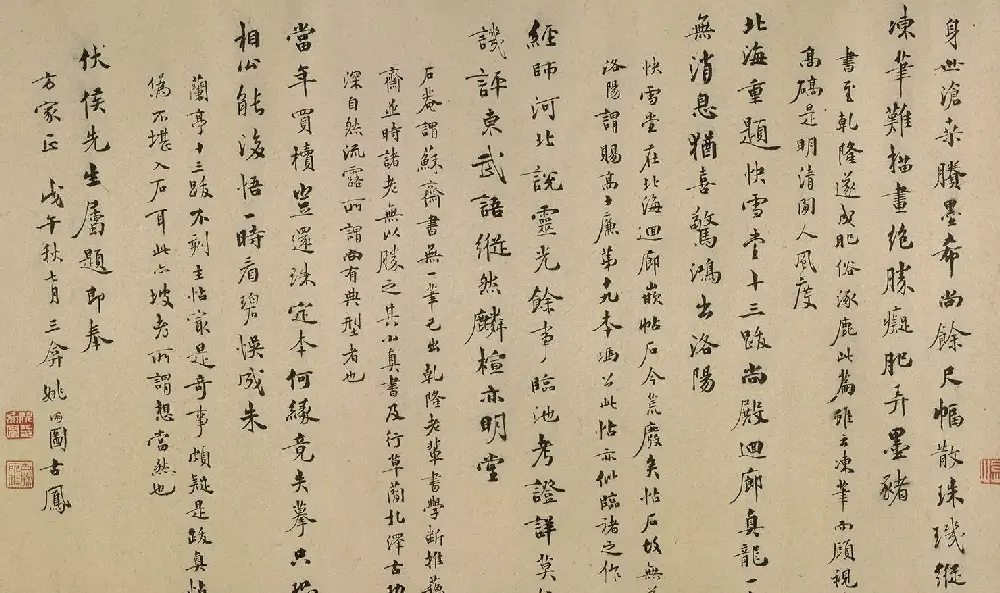 身世滄桑賸墨希尚餘尺幅散珠璣縱
凍筆難描畫絶勝癡肥弄墨豬
書至乾隆遂成肥俗涿鹿此篇雖云凍筆而顧視
高碻是明清閒人風度
北海重題快雪堂十三跋尚殿迴廊真龍一
無消息猶喜驚鴻出洛陽
快雪堂在北海迴廊嵌帖石今荒廢矣帖石故無
洛陽謂賜高十廉第十九本馮公此帖亦似臨褚之作
經師河北說靈光餘事臨池考證詳莫
譏評東武語縱然麟楦亦明堂
石菴謂蘇齋書無一筆己出乾隆老輩書學斷推蘇
齋並時諸老無以勝之其小真書及行草蘭北澤古功
深自然流露所謂尚有典型者也
當年買櫝豈還珠定本何緣竟失摹只
相公能後悟一時看碧悮成朱
蘭亭十三跋不刻主帖家是奇事頗疑是跋真帖
偽不堪入石耳此亦坡老所謂想當然也
伏侯先生屬題即奉
方家正 戊午秋七月三弇姚
圖古鳳